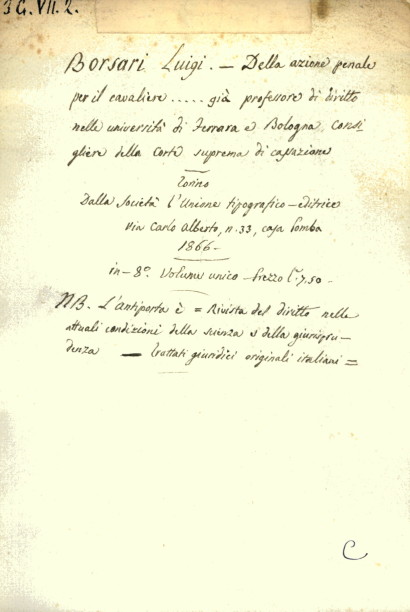 3 G. VII. 2.
Borsari Luigi. — Della azione penale
per il cavaliere ..... già professore di diritto
nelle università di Ferrara e Bologna, consi
gliere della Corte suprema di cassazione
Torino
Dalla Società l'Unione tipografico-editrice
via Carlo Alberto, n. 33, casa Pomba
1866 —
in-8º. Volume unico — Prezzo L. 7,50 —
NB. L'antiporta è = Rivista del diritto nelle
attuali condizioni della scienza e della giurispru-
denza — trattati giuridici originali italiani =
C